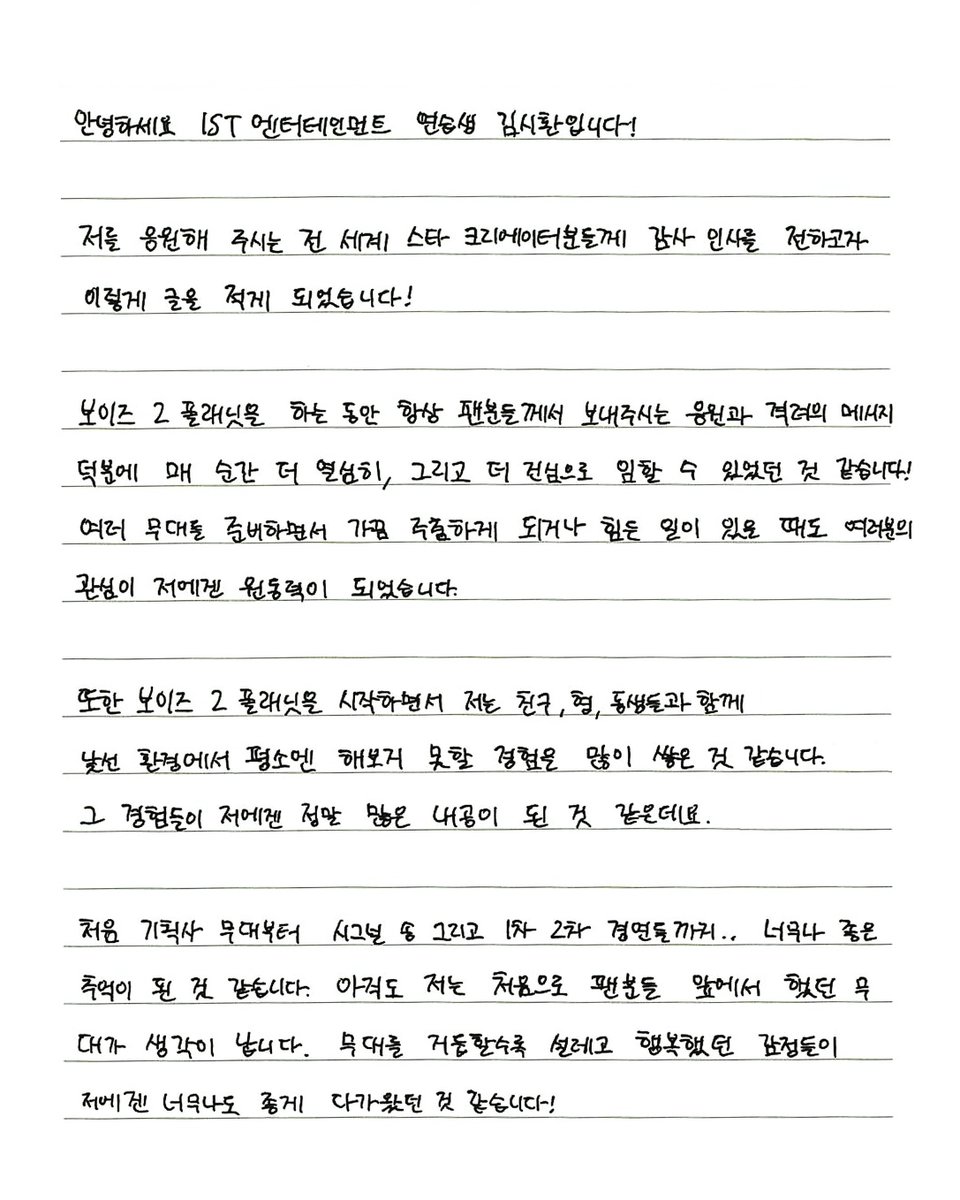 안녕하세요 IST 엔터테인먼트 연습생 김시환입니다!
저를 응원해 주시는 전 세계 스타 크리에이터분들께 감사 인사를 전하고자
이렇게 글을 적게 되었습니다!
보이즈 2 플래닛을 하는 동안 항상 팬분들께서 보내주시는 응원과 격려의 메시지
덕분에 매 순간 더 열심히, 그리고 더 진심으로 임할 수 있었던 것 같습니다!
여러 무대를 준비하면서 가끔 주춤하게 되거나 힘든 일이 있을 때도 여러분의
관심이 저에겐 원동력이 되었습니다.
또한 보이즈 2 플래닛을 시작하면서 저는 친구, 형, 동생들과 함께
낯선 환경에서 평소엔 해보지 못할 경험을 많이 쌓은 것 같습니다.
그 경험들이 저에겐 정말 많은 내공이 된 것 같은데요.
처음 기획사 무대부터 시그널 송 그리고 1차 2차 경연들까지.. 너무나 좋은
추억이 된 것 같습니다. 아직도 저는 처음으로 팬분들 앞에서 했던 무
대가 생각이 납니다. 무대를 거듭할수록 설레고 행복했던 감정들이
저에겐 너무나도 좋게 다가왔던 것 같습니다!